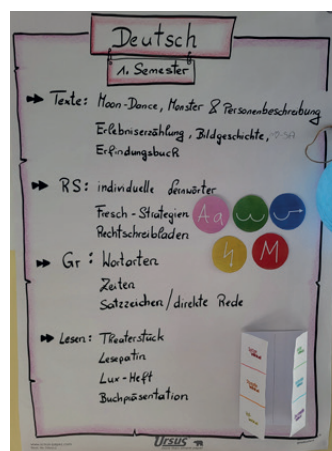 Deutsch
1. Semester
Texte: Moon-Dance, Monster & Personenbeschreibung
Erlebniserzählung, Bildgeschichte,
Erfindungsbuch
RS: individuelle Lernwörter
Fresch-Strategien
Rechtschreibladen
Aa
M
Gr: Wortarten
Zeiten
Satzzeichen/direkte Rede
Lesen: Theaterstück
Lesepatin
Lux-Heft
Buchpräsentation
Ursus